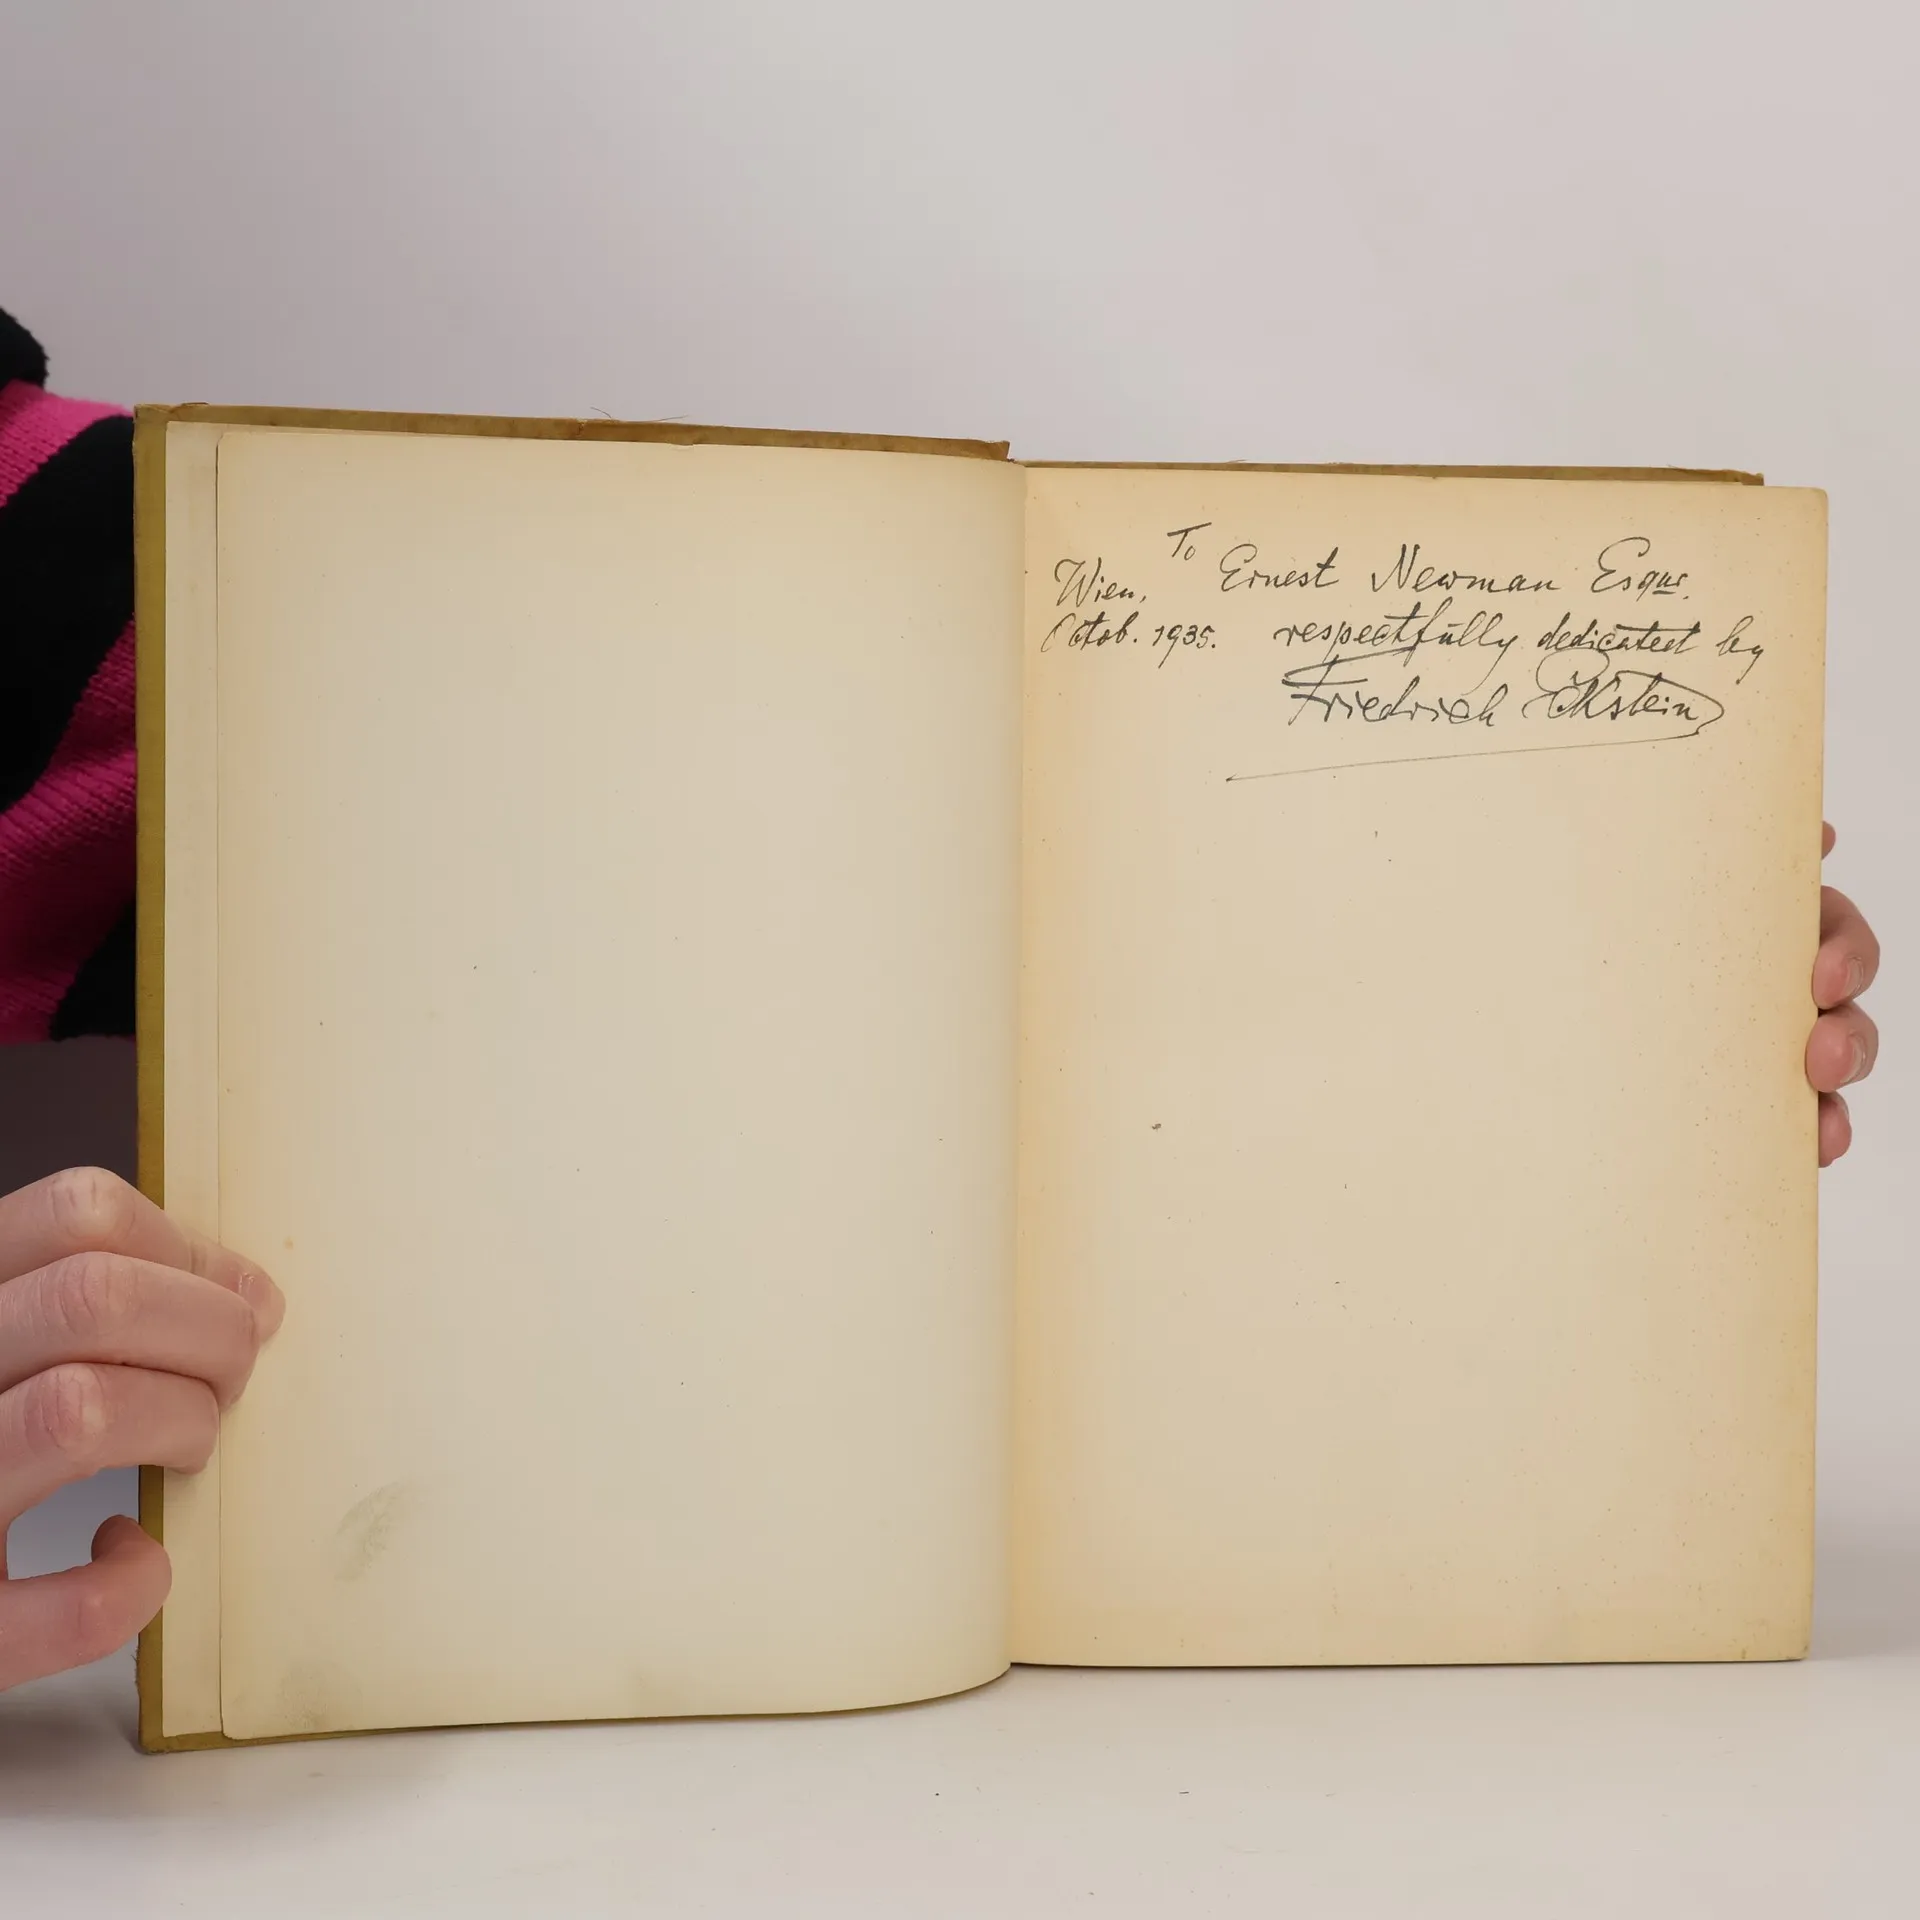 To Ernest Newman Esqur.
Wien,
Octob. 1935. respectfully dedicated by
Friedrich Eckstein